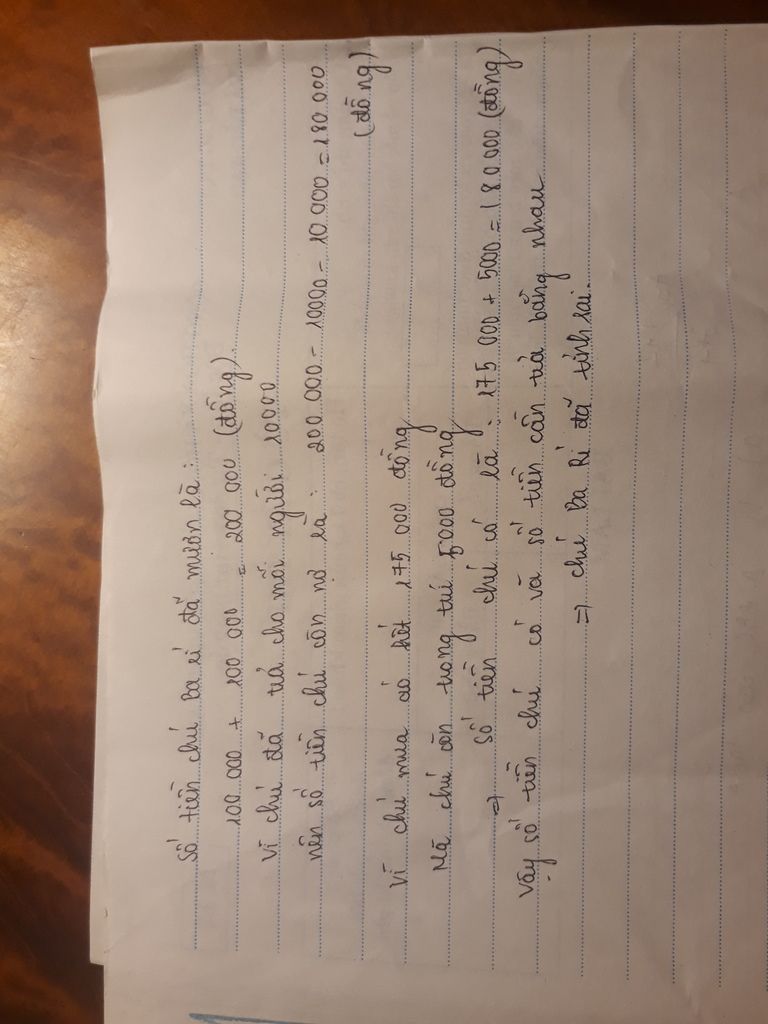 Số tiền chú Ba Rí đã mượn là:
100 000 + 100 000 = 200 000 (đồng)
Vì chú đã trả cho mỗi người 10000
nên số tiền chú còn nợ là: 200 000 - 10000 - 10 000 = 180 000
(đồng)
Vì chú mua áo hết 175 000 đồng
Mà chú còn trong túi 5000 đồng
=> Số tiền chú có là: 175 000 + 5000 = 180 000 (đồng)
Vậy số tiền chú có và số tiền cần trả bằng nhau
=> chú Ba Rí đã tính sai.